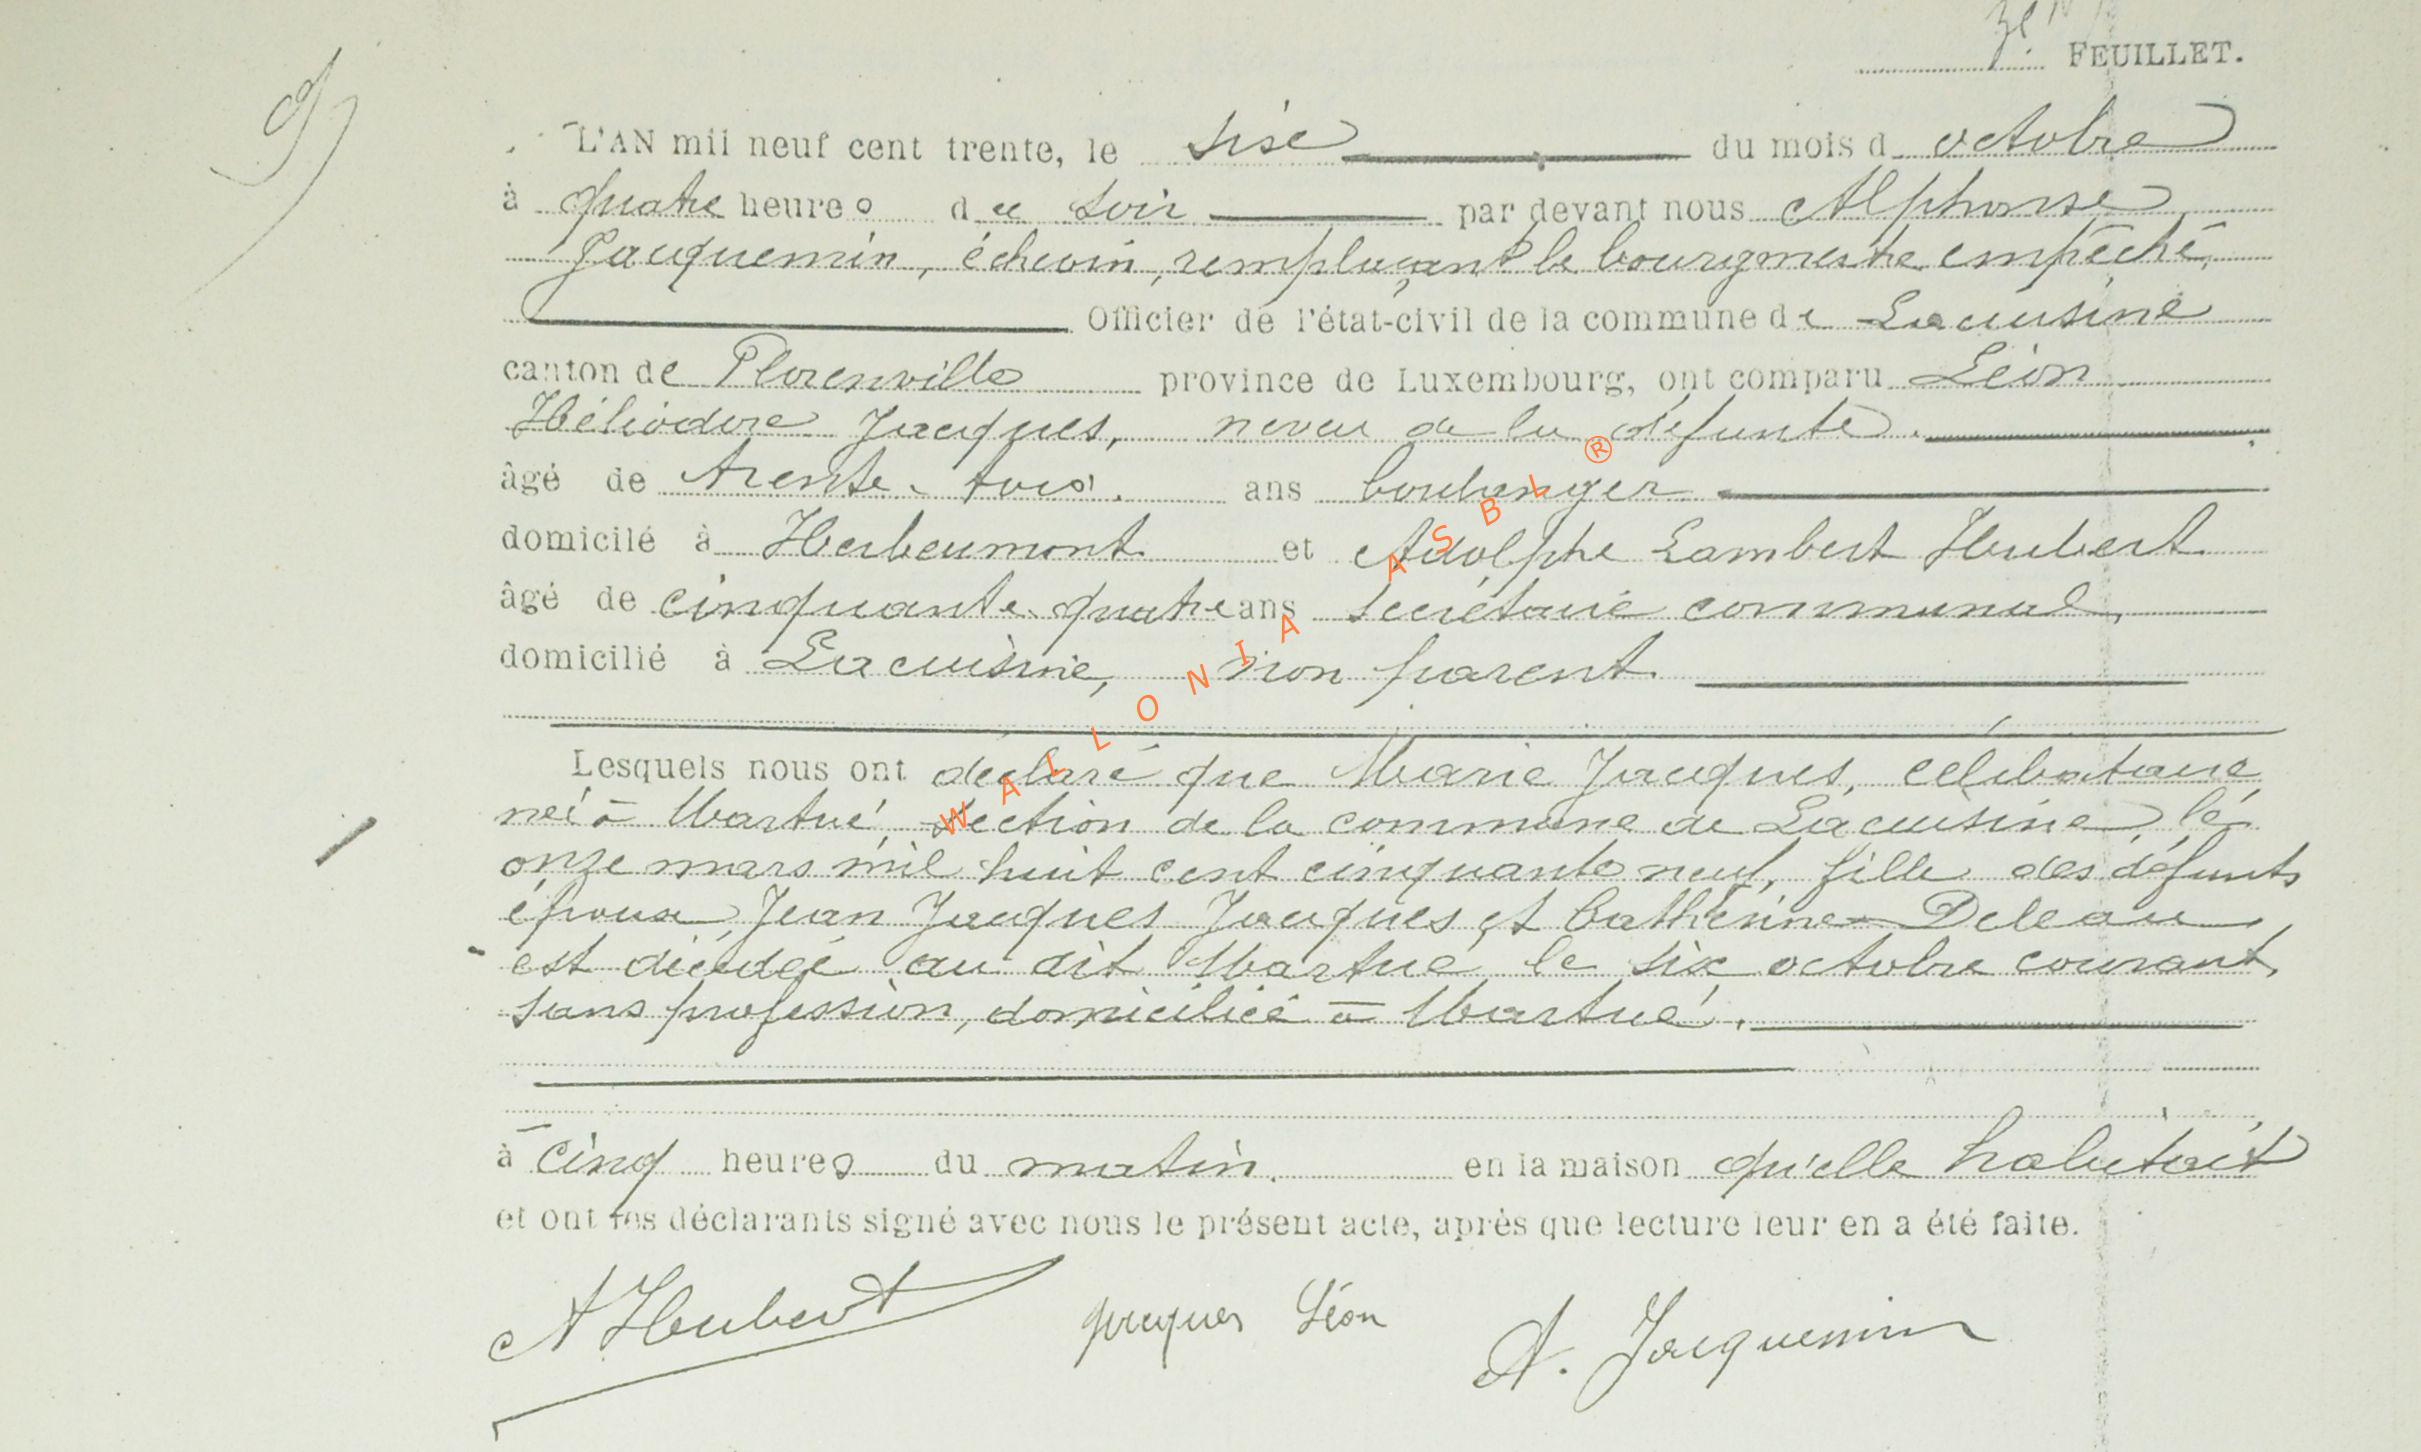 7e. FEUILLET.
9
L'AN mil neuf cent trente, le six du mois d octobre
à quatre heures du soir par devant nous Alphonse
Jacquemin, échevin, remplaçant le bourgmestre empêché,
Officier de l'état-civil de la commune de Lacuisine
canton de Florenville province de Luxembourg, ont comparu Léon
Héliodore Jacques, neveu de la défunte.
âgé de trente-trois ans boulanger
domicilé à Herbeumont et Adolphe Lambert Hubert
âgé de cinquante-quatre ans secrétaire communal,
domicilié à Lacuisine, non parent.
Lesquels nous ont déclaré que Marie Jacques, célibataire
née à Martué, section de la commune de Lacuisine le
onze mars mil huit cent cinquante neuf, fille des défunts
époux, Jean Jacques Jacques et Cathérine Deleau
est décédée au dit Martué le six octobre courant,
sans profession, domiciliée à Martué.
à cinq heures du matin. en la maison qu'elle habitait
et ont les déclarants signé avec nous le présent acte, après que lecture leur en a été faite.
A Hubert Jacques Léon A. Jacquemin
WALLONIA ASBL ®